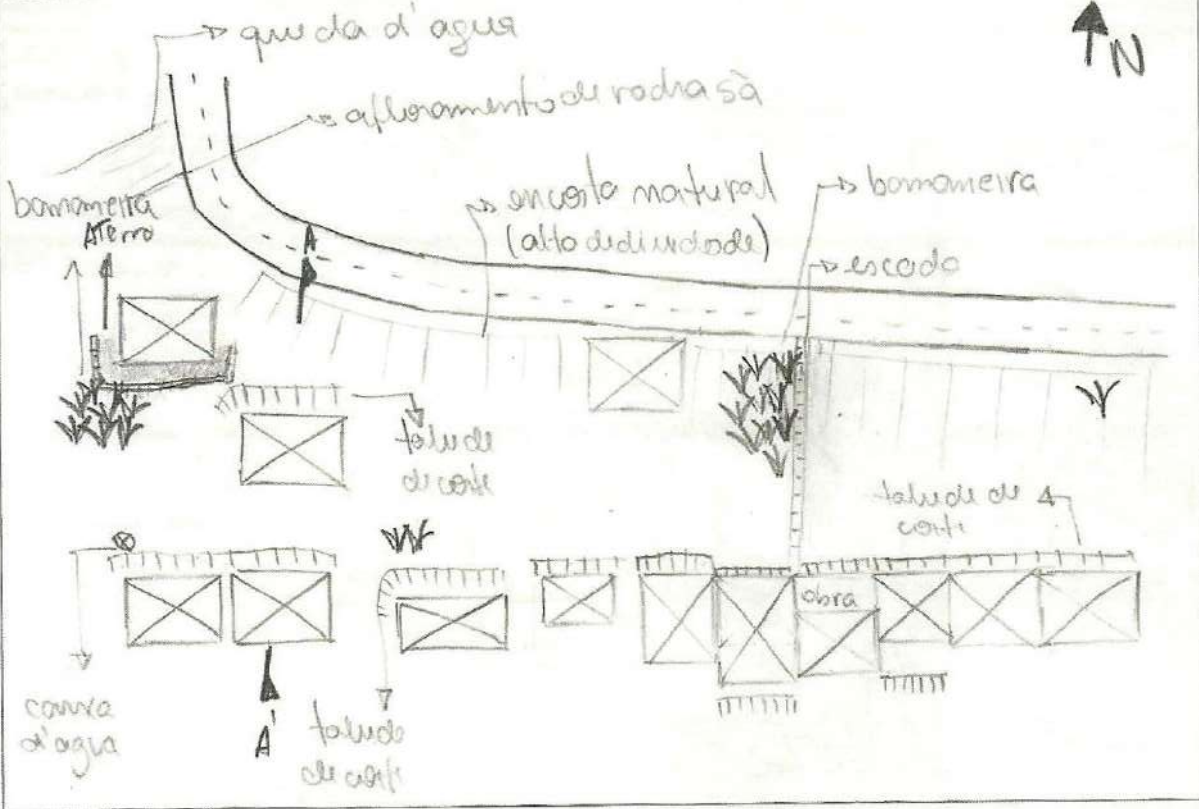 queda d'agua
N
afloramento de rocha sã
bananeira
Aterro
encosta natural
(alta declividade)
bananeira
escada
A
talude
de corte
talude de
corte
obra
caixa
d'agua
A'
talude
de corte